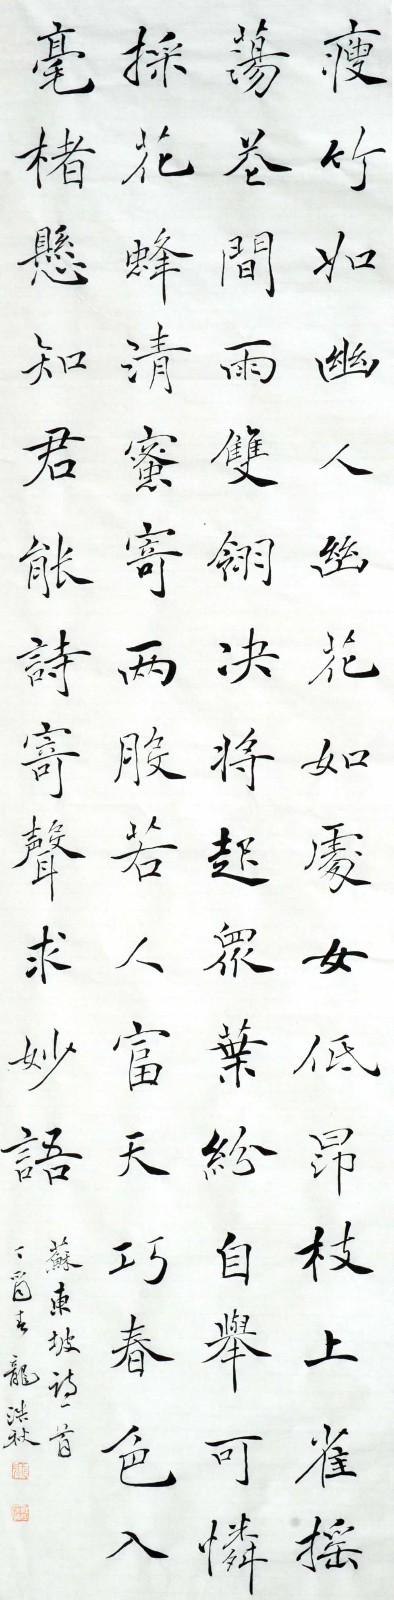 瘦竹如幽人幽花如處女低昂枝上雀摇
蕩花間雨雙翎决将起衆葉紛自舉可憐
採花蜂清蜜寄两股若人富天巧春色入
毫楮懸知君能詩寄聲求妙語
蘇東坡詩一首
丁酉春龍洪